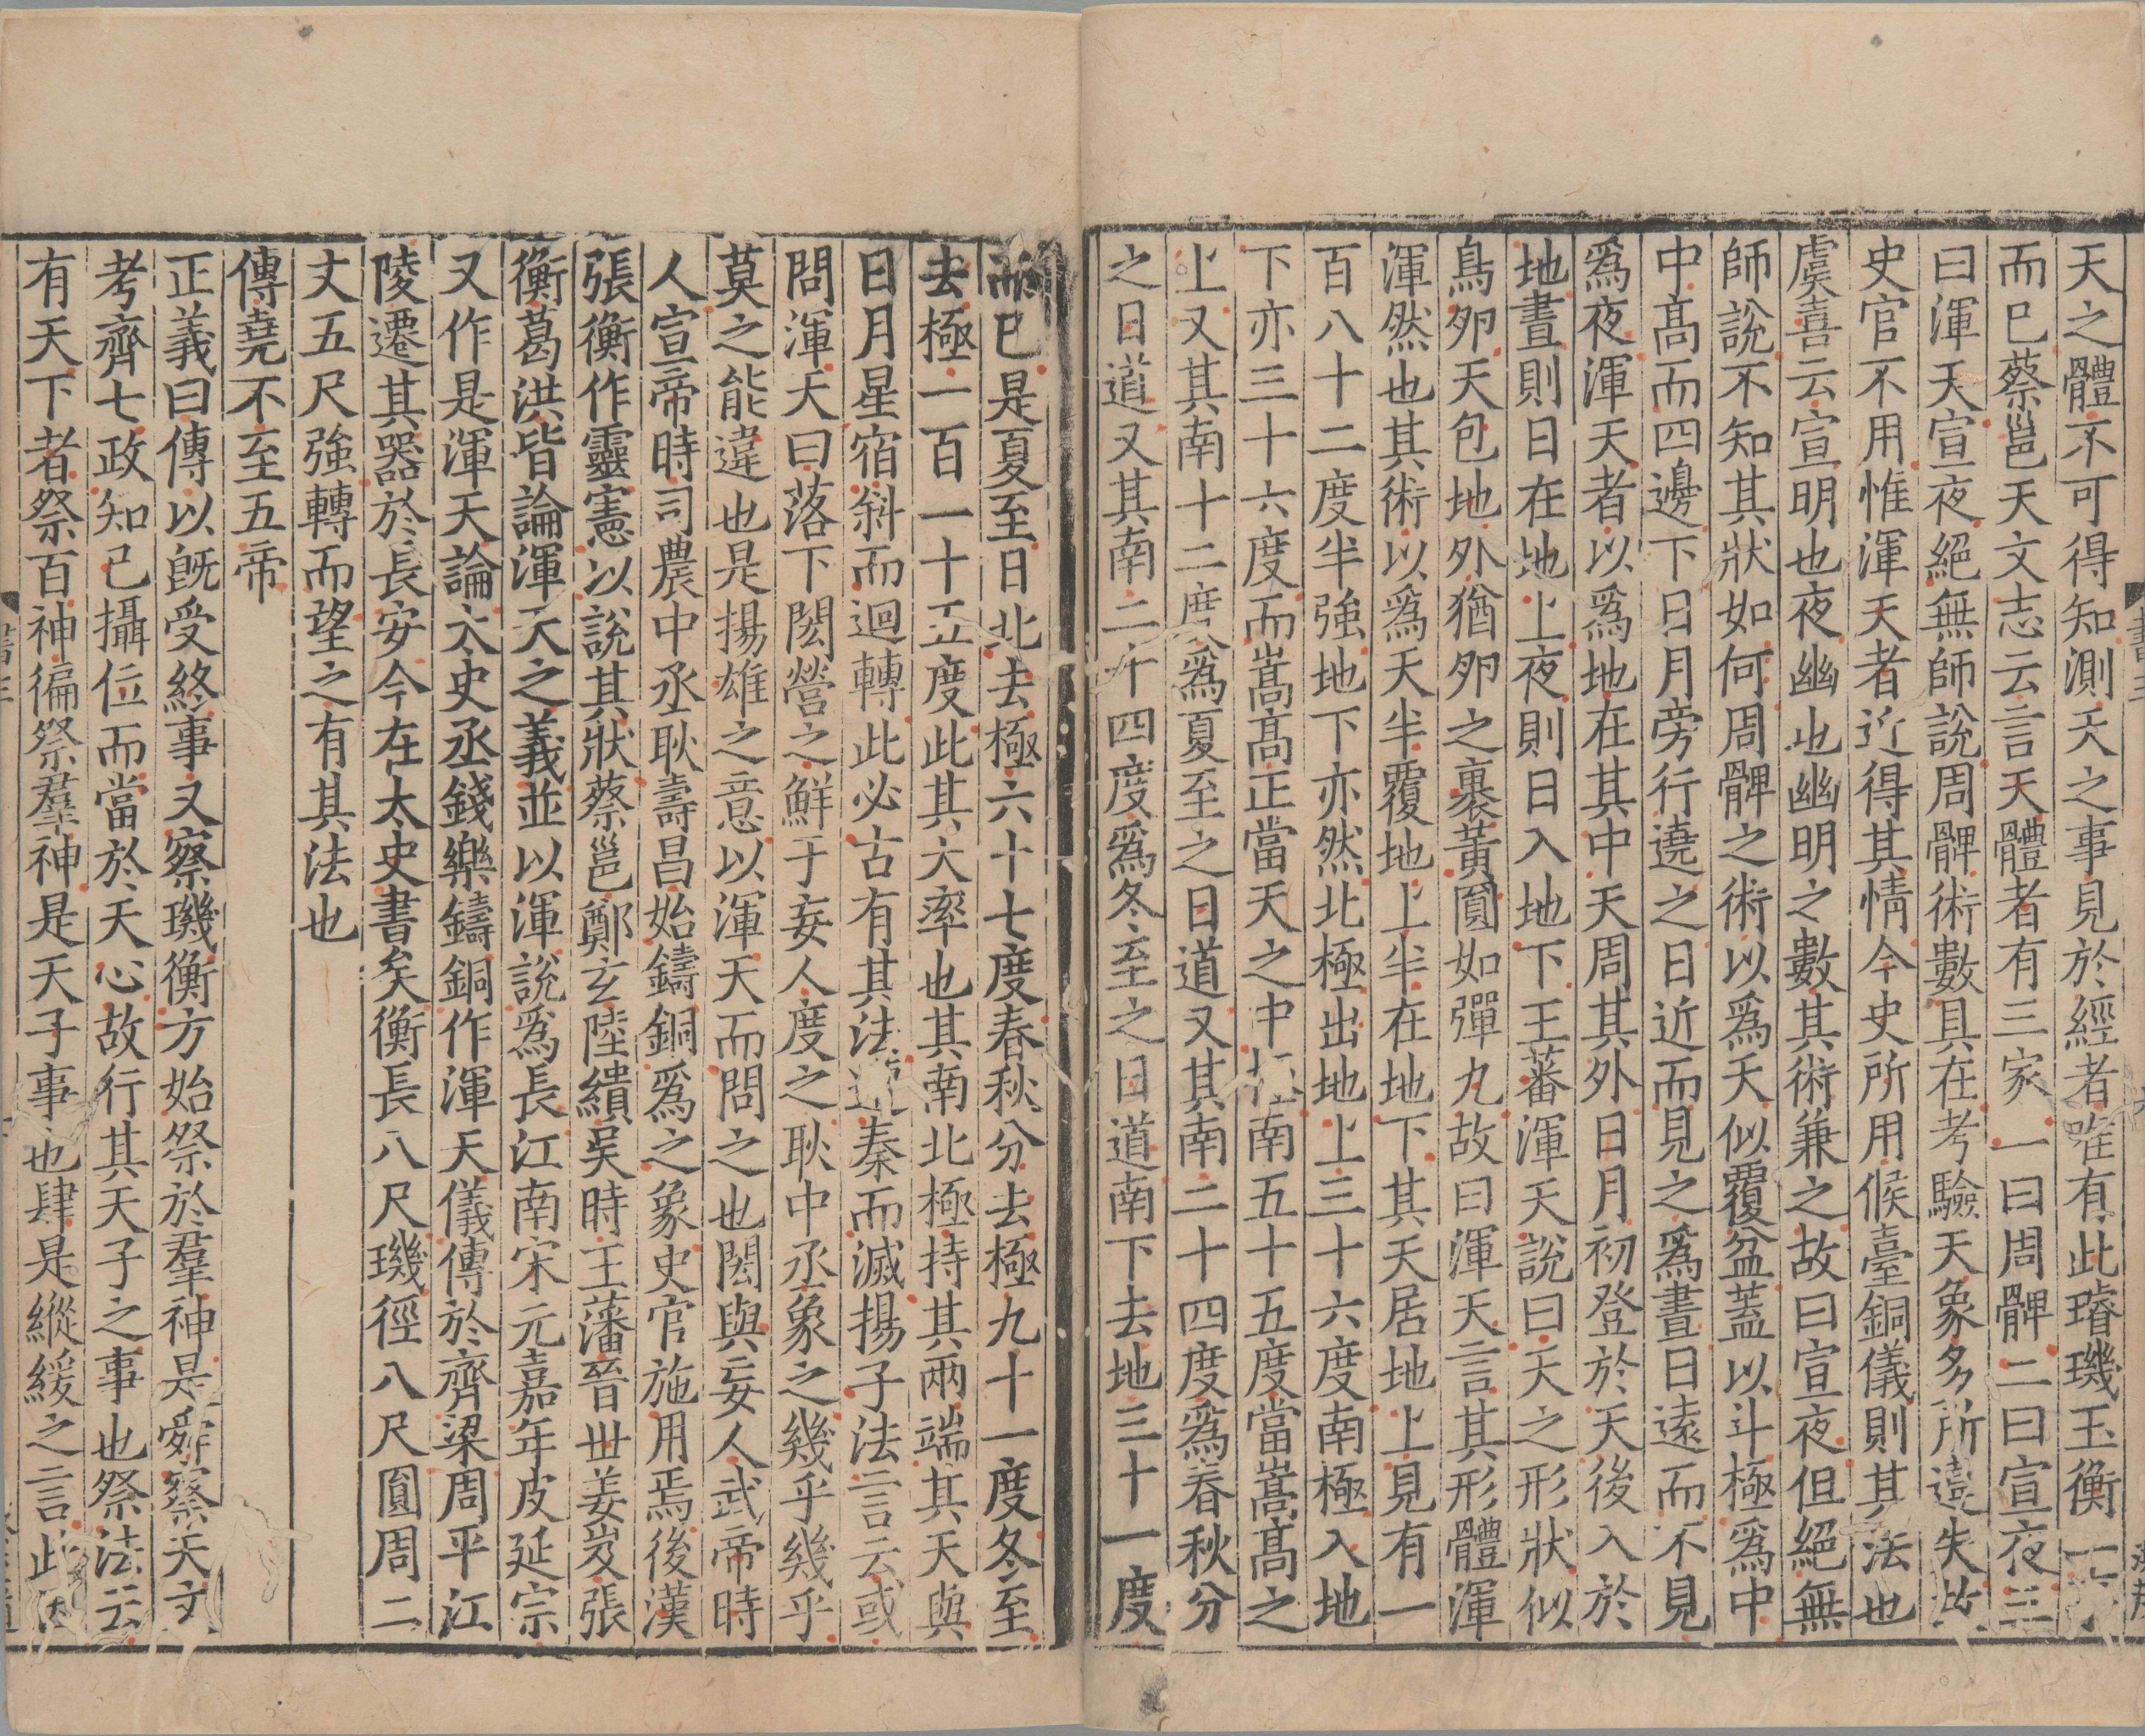 天之體不可得知測天之事見於經者唯有此璿璣玉衡一
而已蔡邕天文志云言天體者有三家一曰周髀二曰宣夜三
曰渾天宣夜絕無師說周髀術數具在考驗天象多所違失故
史官不用惟渾天者近得其情今史所用候臺銅儀則其法也
虞喜云宣明也夜幽也幽明之數其術兼之故曰宣夜但絕無
師說不知其狀如何周髀之術以爲天似覆盆蓋以斗極爲中
中髙而四邊下日月旁行遶之日近而見之爲晝日遠而不見
爲夜渾天者以爲地在其中天周其外日月初登於天後入於
地晝則日在地上夜則日入地下王蕃渾天說曰天之形狀似
鳥卵天包地外猶卵之裹黃圎如彈丸故曰渾天言其形體渾
渾然也其術以爲天半覆地上半在地下其天居地上見有一
百八十二度半強地下亦然北極出地上三十六度南極入地
下亦三十六度而嵩髙正當天之中極南五十五度當嵩髙之
上又其南十二度爲夏至之日道又其南二十四度爲春秋分
之日道又其南二十四度爲冬至之日道南下去地三十一度
而已是夏至日北去極六十七度春秋分去極九十一度冬至
去極一百一十五度此其大率也其南北極持其兩端其天與
日月星宿斜而迴轉此必古有其法遭秦而滅揚子法言云或
問渾天曰落下閎營之鮮于妄人度之耿中丞象之幾乎幾乎
莫之能違也是揚雄之意以渾天而問之也閎與妄人武帝時
人宣帝時司農中丞耿壽昌始鑄銅爲之象史官施用焉後漢
張衡作靈憲以說其狀蔡邕鄭玄陸績吳時王藩晉世姜岌張
衡葛洪皆論渾天之義並以渾說爲長江南宋元嘉年皮延宗
又作是渾天論太史丞錢樂鑄銅作渾天儀傳於齊梁周平江
陵遷其器於長安今在太史書矣衡長八尺璣徑八尺圓周二
丈五尺強轉而望之有其法也
傳堯不至五帝
正義曰傳以旣受終事又察璣衡方始祭於羣神是舜察天文
考齊七政知已攝位而當於天心故行其天子之事也祭法云
有天下者祭百神徧祭羣神是天子事也肆是縱緩之言此因